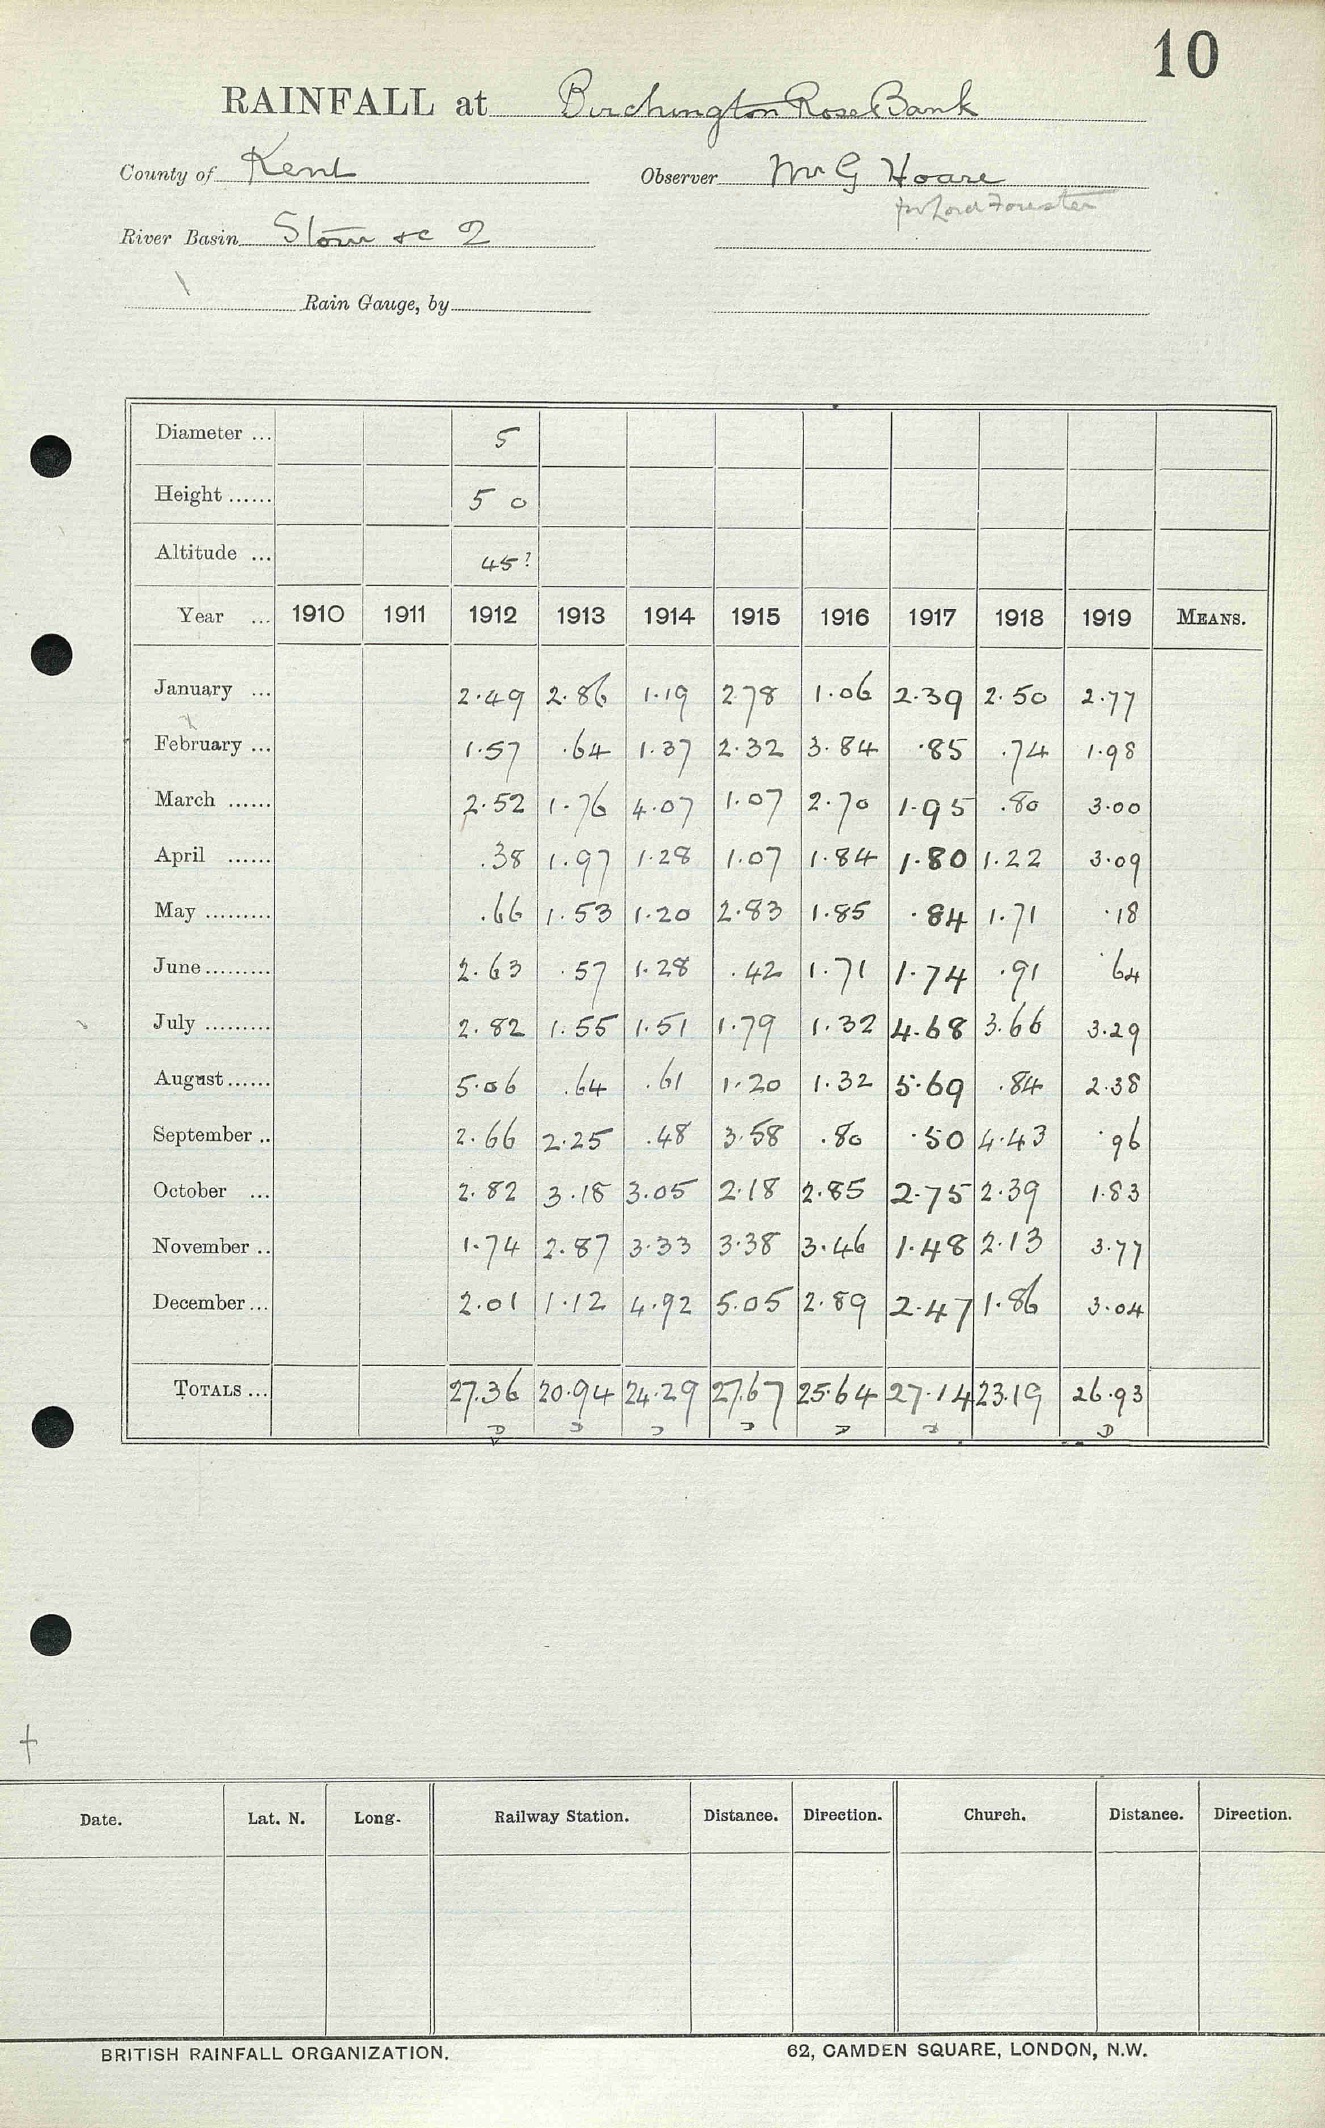 10
RAINFALL at Birchington Rose Bank
County of Kent Observer Mr G Hoare
for Lord Forester
River Basin Stour &c 2
Rain Gauge, by
Diameter ... 5
Height ...... 5 0
Altitude ... 45?
Year ... 1910 1911 1912 1913 1914 1915 1916 1917 1918 1919 MEANS.
January ... 2.49 2.86 1.19 2.78 1.06 2.39 2.50 2.77
February ... 1.57 .64 1.37 2.32 3.84 .85 .74 1.98
March ...... 2.52 1.76 4.07 1.07 2.70 1.95 .80 3.00
April ...... .38 1.97 1.28 1.07 1.84 1.80 1.22 3.09
May ......... .66 1.53 1.20 2.83 1.85 .84 1.71 .18
June ......... 2.63 .57 1.28 .42 1.71 1.74 .91 .64
July ......... 2.82 1.55 1.51 1.79 1.32 4.68 3.66 3.29
August ...... 5.06 .64 .61 1.20 1.32 5.69 .84 2.38
September .. 2.66 2.25 .48 3.58 .80 .50 4.43 .96
October ... 2.82 3.18 3.05 2.18 2.85 2.75 2.39 1.83
November .. 1.74 2.87 3.33 3.38 3.46 1.48 2.13 3.77
December ... 2.01 1.12 4.92 5.05 2.89 2.47 1.86 3.04
TOTALS ... 27.36 20.94 24.29 27.67 25.64 27.14 23.19 26.93
Date. Lat. N. Long. Railway Station. Distance. Direction. Church. Distance. Direction.
BRITISH RAINFALL ORGANIZATION. 62, CAMDEN SQUARE, LONDON, N.W.